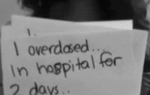 I
I overdosed..
In hospital for
2 days..